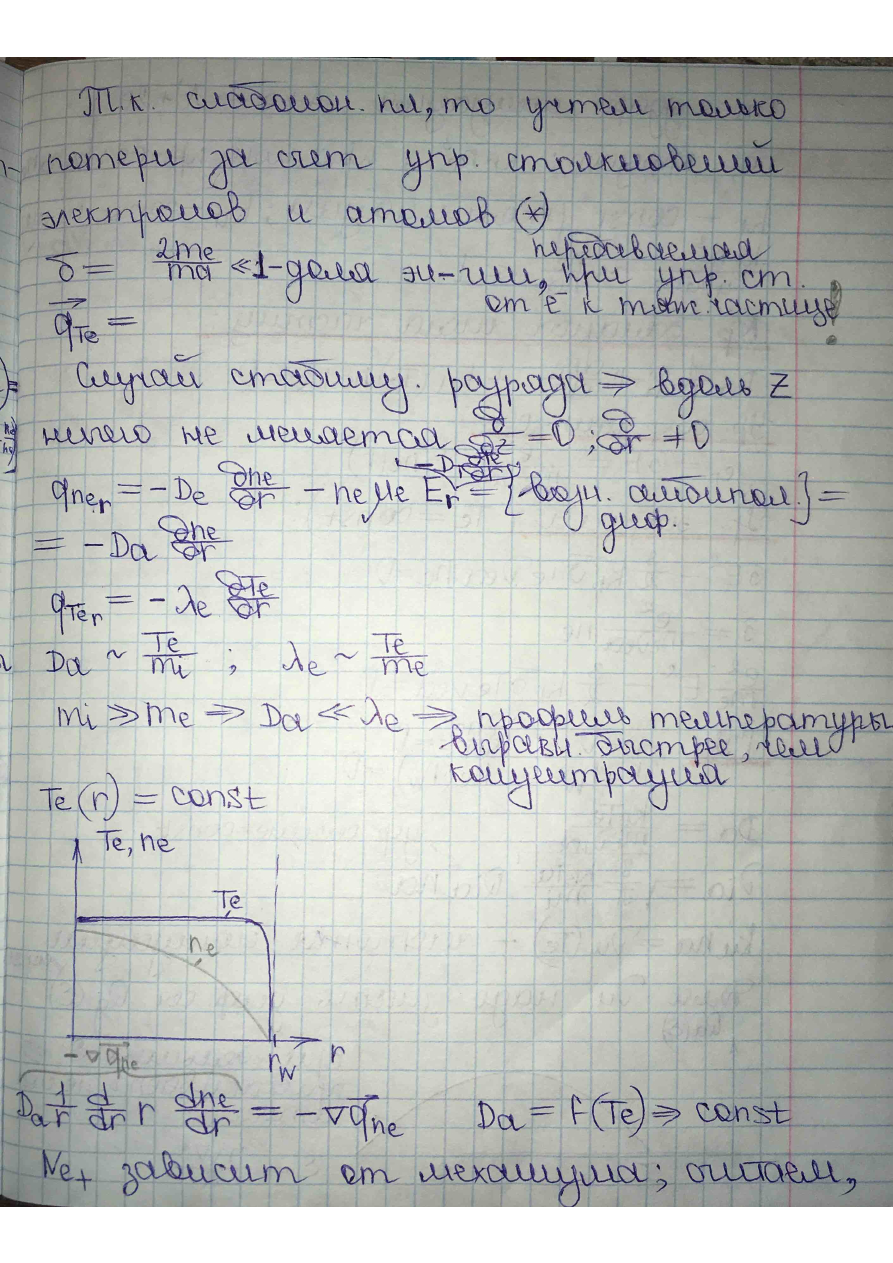 Т.к. слабоион. пл, то учтем только
потери за счет упр. столкновений
электронов и атомов (*)
δ = 2me/ma ≪ 1 - доля эн-гии, передаваемая при упр. ст.
от e⁻ к тяж. частице
q⃗Te =
Случай стабилиз. разряда ⇒ вдоль z
ничего не меняется ∂/∂z = 0 ; ∂/∂r ≠ 0
qne r = - De ∂ne/∂r - ne μe Er = [возн. амбипол. диф.] =
= - Da ∂ne/∂r
qTe r = - λe ∂Te/∂r
Da ~ Te/mi ; λe ~ Te/me
mi ≫ me ⇒ Da ≪ λe ⇒ профиль температуры
выравн. быстрее, чем
концентрация
Te(r) = const
Te, ne
Te
ne
rw
r
- ∇q⃗ne
Da 1/r d/dr r dne/dr = - ∇q⃗ne Da = f(Te) ⇒ const
Ne+ зависит от механизма; считаем,